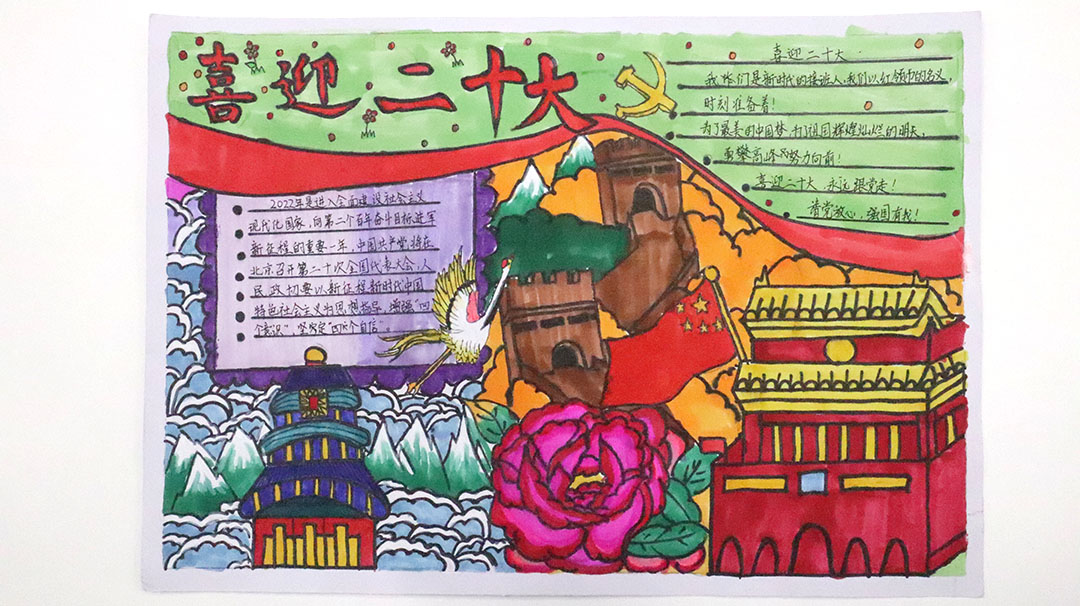 喜迎二十大
喜迎二十大
我们是新时代的接班人,我们以红领巾的名义,
时刻准备着!
为了最美的中国梦,为了祖国辉煌灿烂的明天,
勇攀高峰努力向前!
喜迎二十大,永远跟党走!
请党放心,强国有我!
2022年是进入全面建设社会主义
现代化国家,向第二个百年奋斗目标进军
新征程的重要一年,中国共产党将在
北京召开第二十次全国代表大会,人
民政切要以新征程新时代中国
特色社会主义为思想指导,增强"四
个意识",坚定"四个自信"